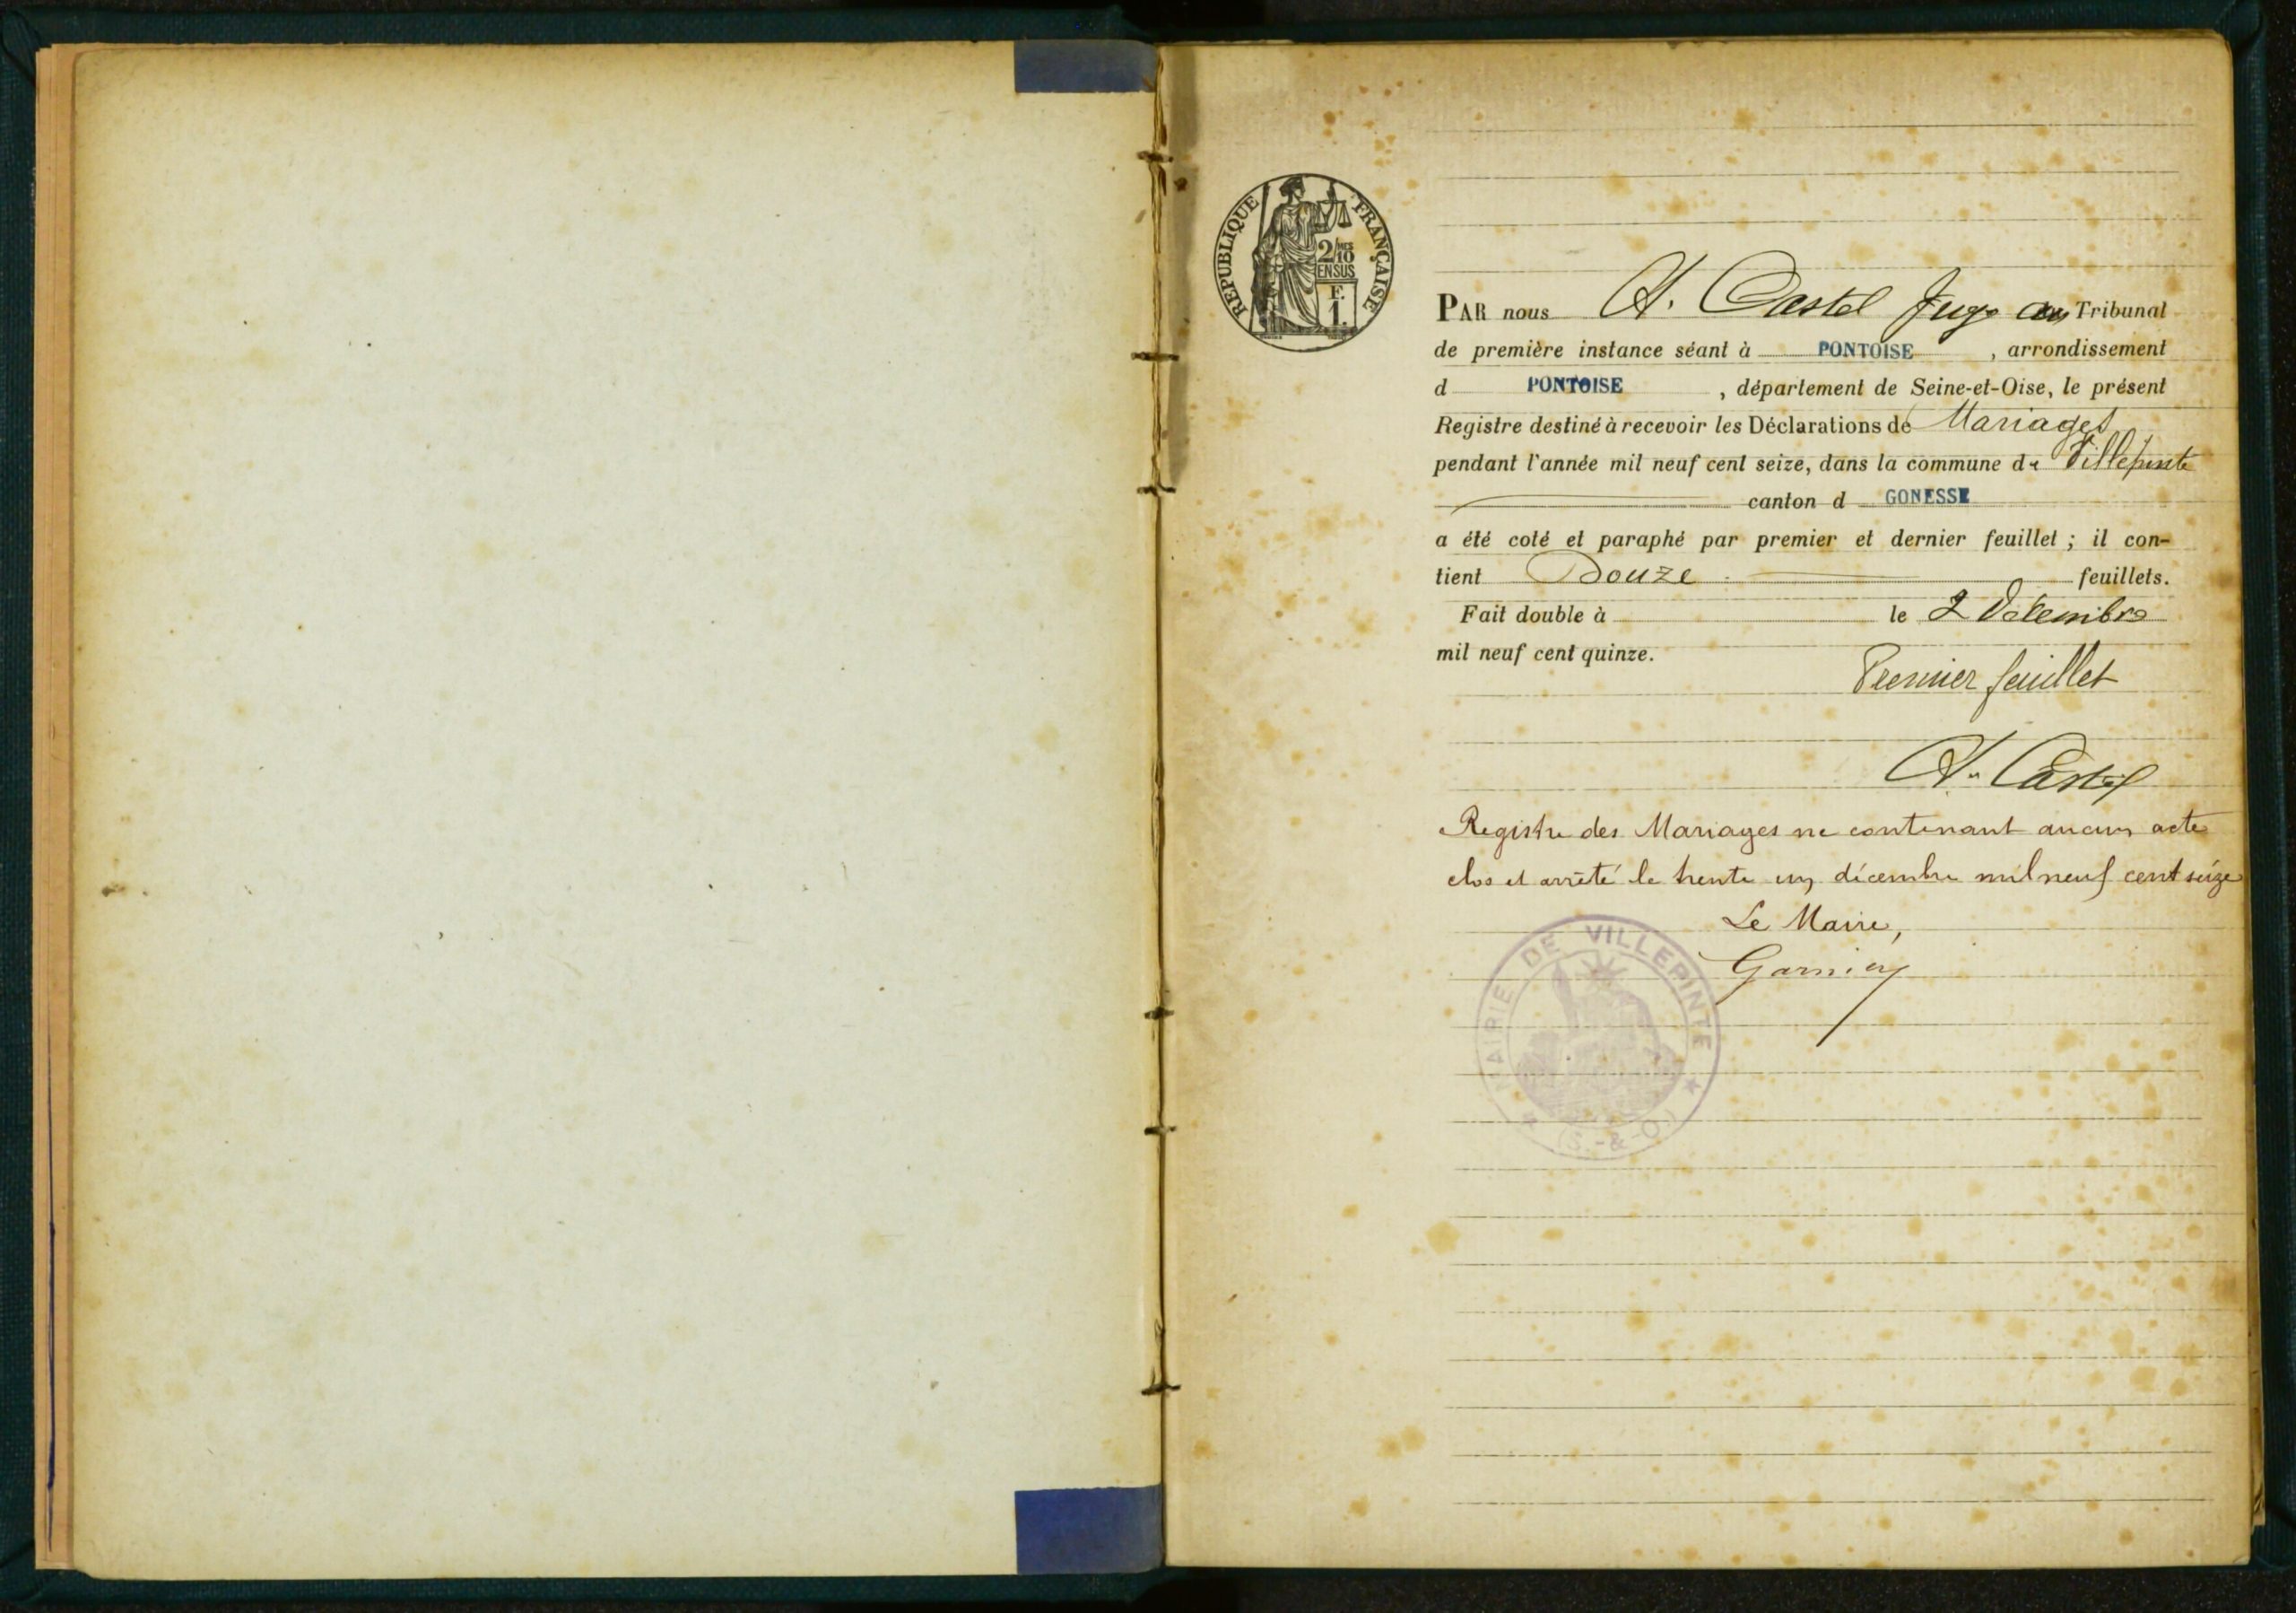 RÉPUBLIQUE FRANÇAISE
2/10 MES
EN SUS
F.
1.
PAR nous A. Castel Juge au Tribunal
de première instance séant à PONTOISE, arrondissement
d PONTOISE, département de Seine-et-Oise, le présent
Registre destiné à recevoir les Déclarations de Mariages
pendant l'année mil neuf cent seize, dans la commune de Villepinte
canton d GONESSE
a été coté et paraphé par premier et dernier feuillet ; il con-
tient Douze feuillets.
Fait double à le 2 Décembre
mil neuf cent quinze.
Premier feuillet
A. Castel
Registre des Mariages ne contenant aucun acte
clos et arrêté le trente un décembre mil neuf cent seize
Le Maire,
Garnier
MAIRIE DE VILLEPINTE
(S.-&-O.)